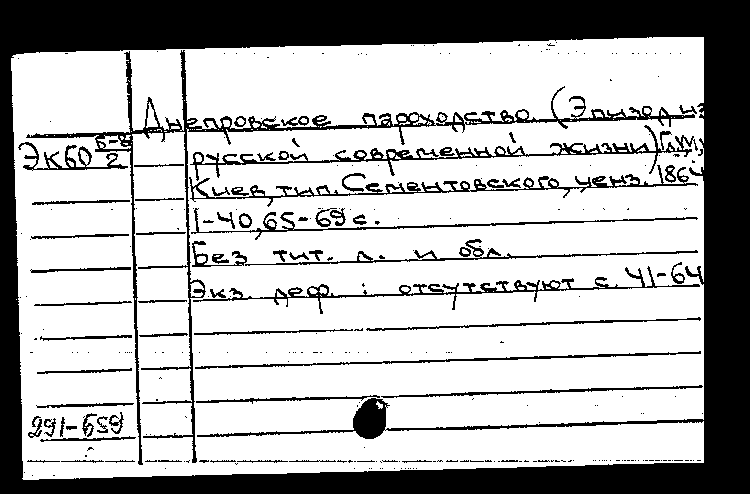 Днепровское пароходство (Эпизод из
ЭК60 Б-8/2
русской современной жизни)
Киев, тип. Сементовского, ценз. 1864
1-40, 65-69 с.
Без тит. л. и обл.
Экз. деф. : отсутствуют с. 41-64
291-659